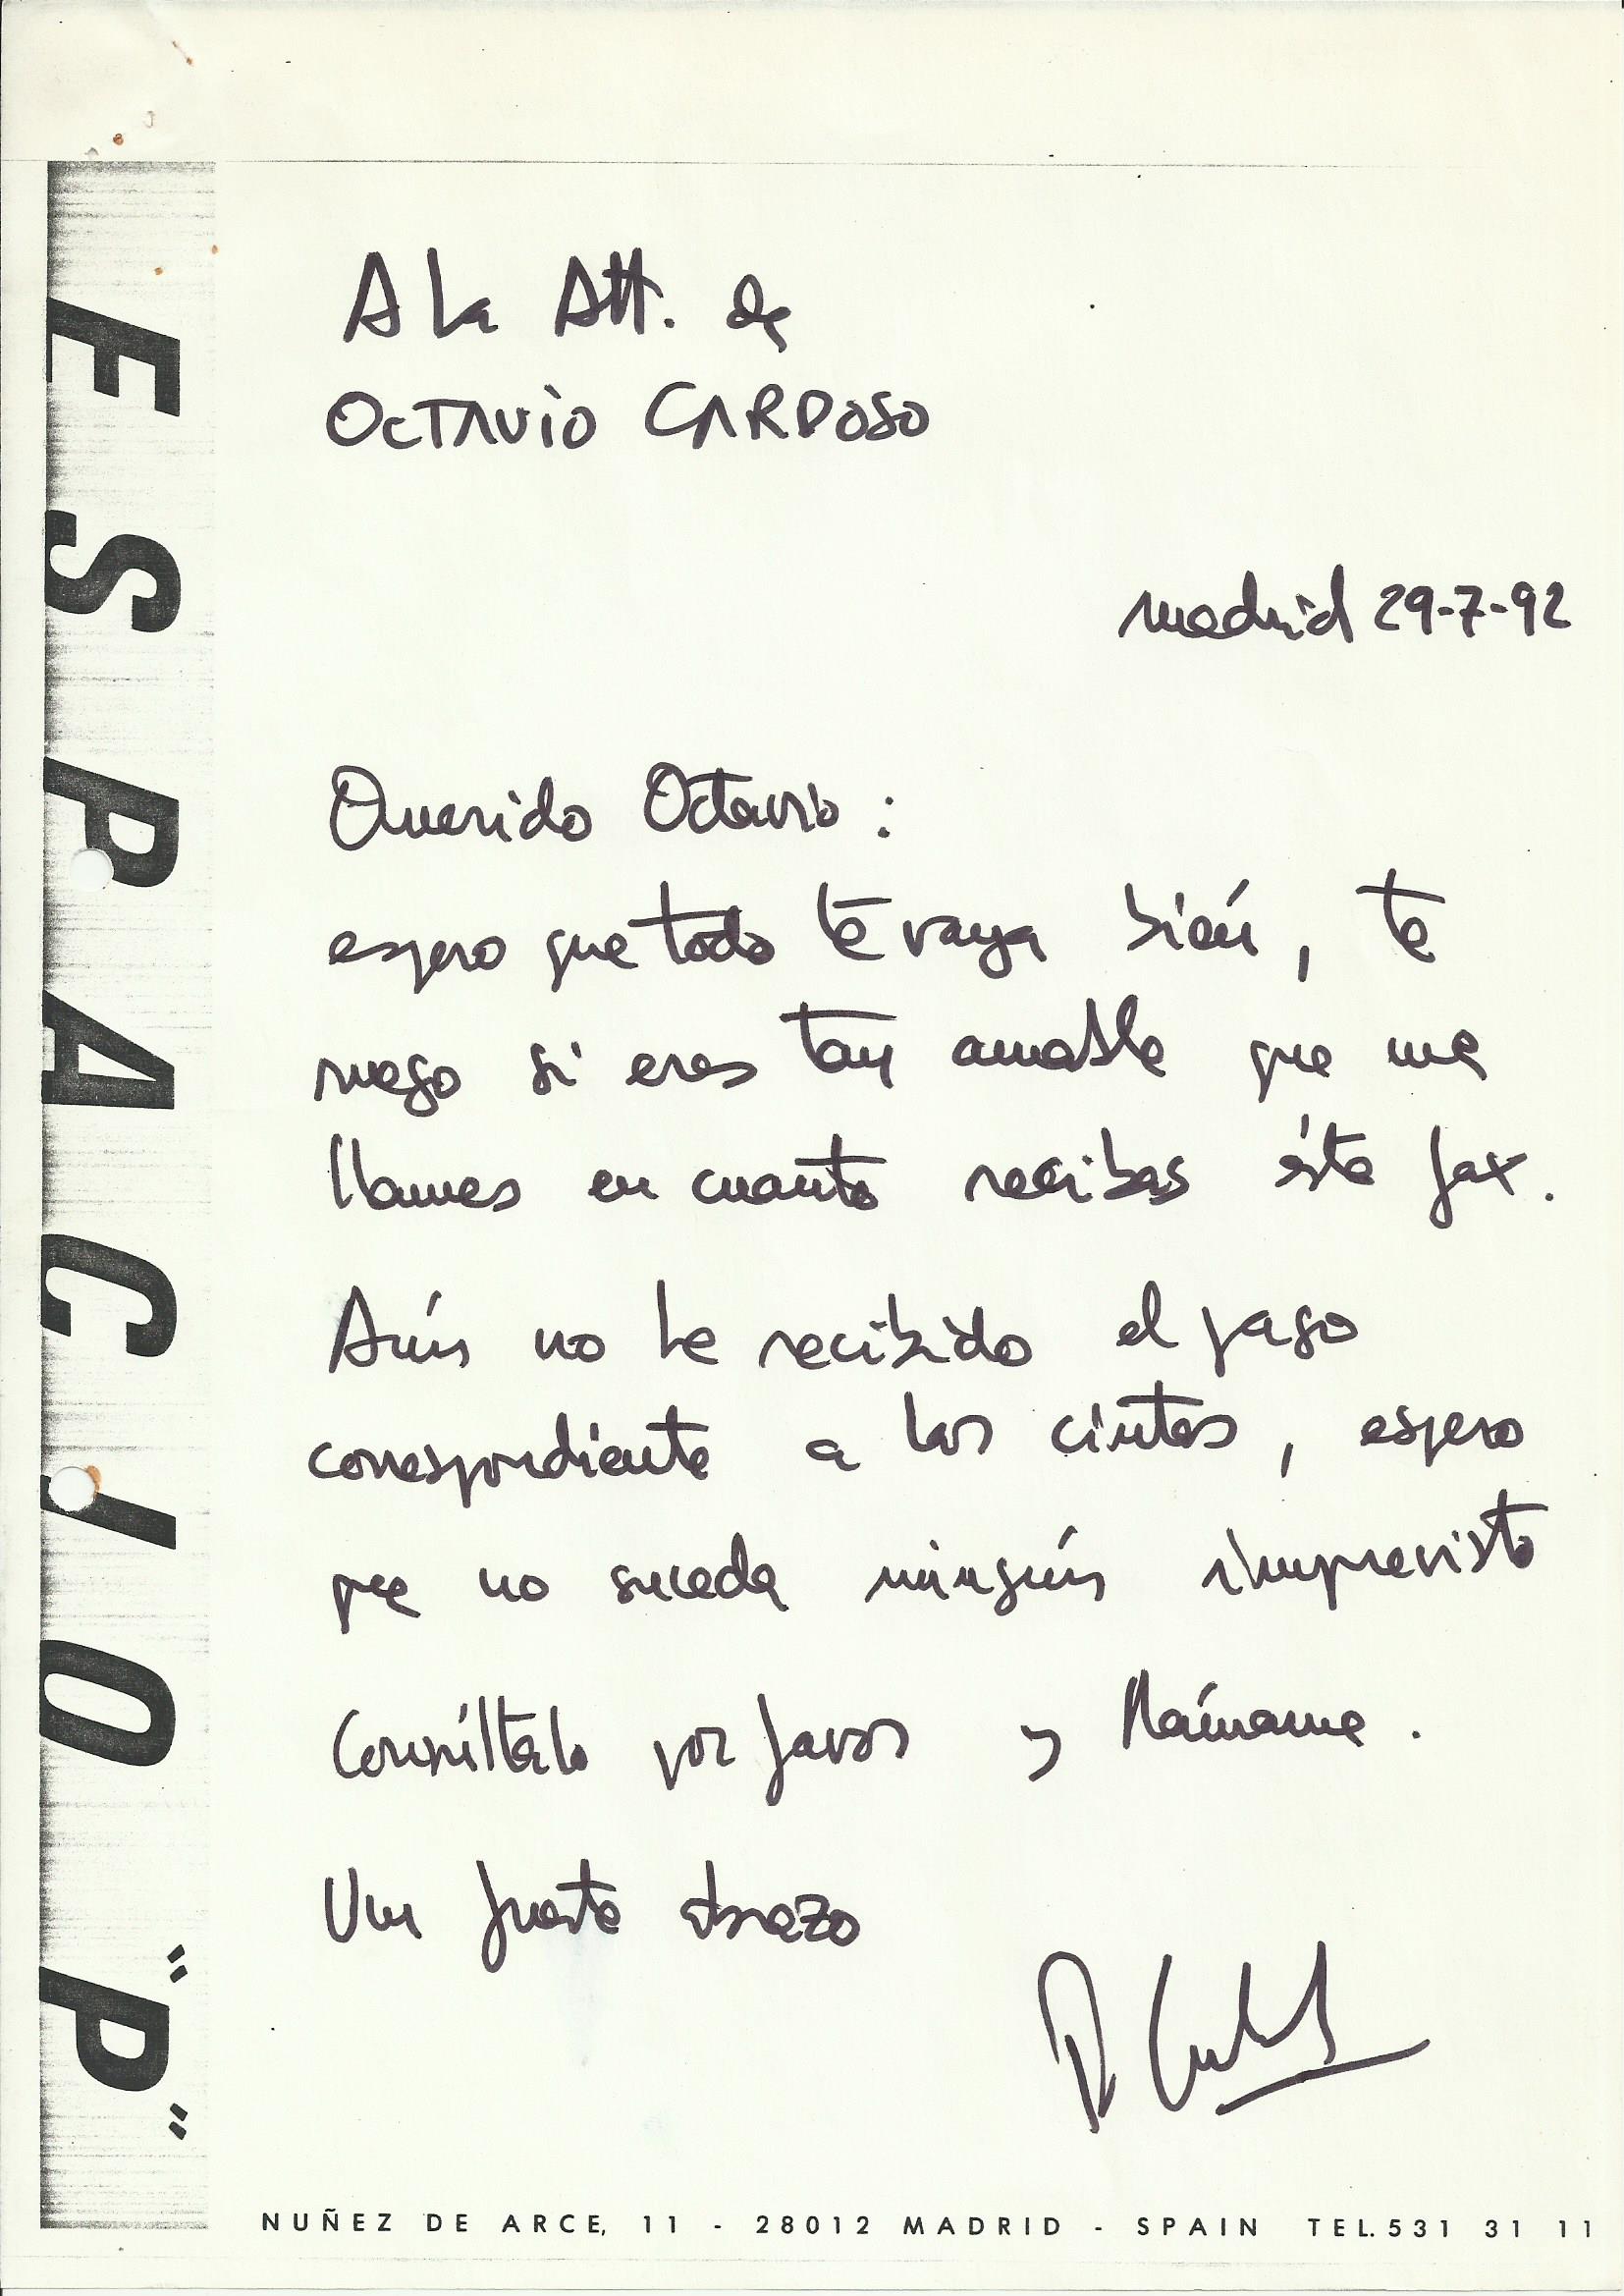 ESPACIO "P"
A la Att. de
OCTAVIO CARDOSO
Madrid 29-7-92
Querido Octavio :
espero que todo te vaya bién, te
ruego si eres tan amable que me
llames en cuanto recibas éste fax.
Aún no he recibido el pago
correspondiente a las cintas, espero
que no suceda ningún imprevisto
Consúltalo por favor y llámame.
Un fuerte abrazo
NUÑEZ DE ARCE, 11 - 28012 MADRID - SPAIN TEL. 531 31 11